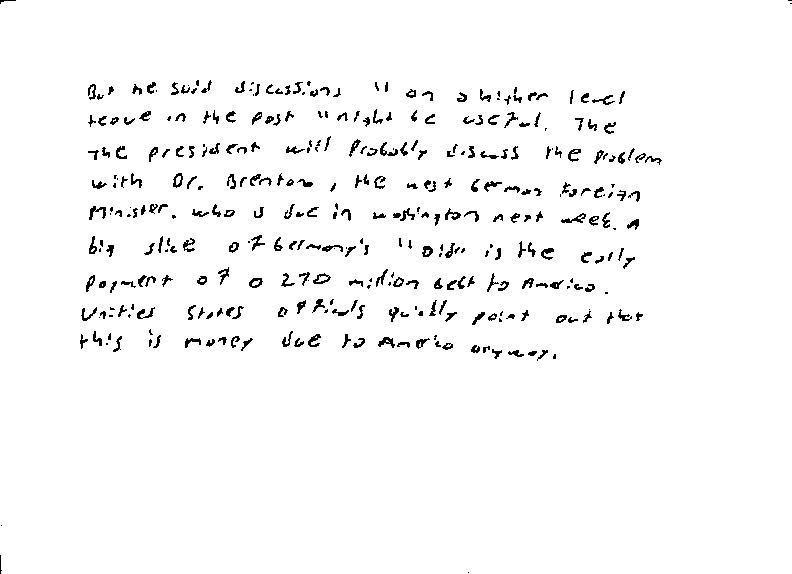 But he said discussions " on a higher level
leave in the past " might be useful. The
The president will probably discuss the problem
with Dr. Brentano, the west German Foreign
Minister. who is due in washington next week. A
big slice of Germany's " aid" is the early
payment of a 270 million debt to America.
United States officials quickly point out that
this is money due to America anyway.